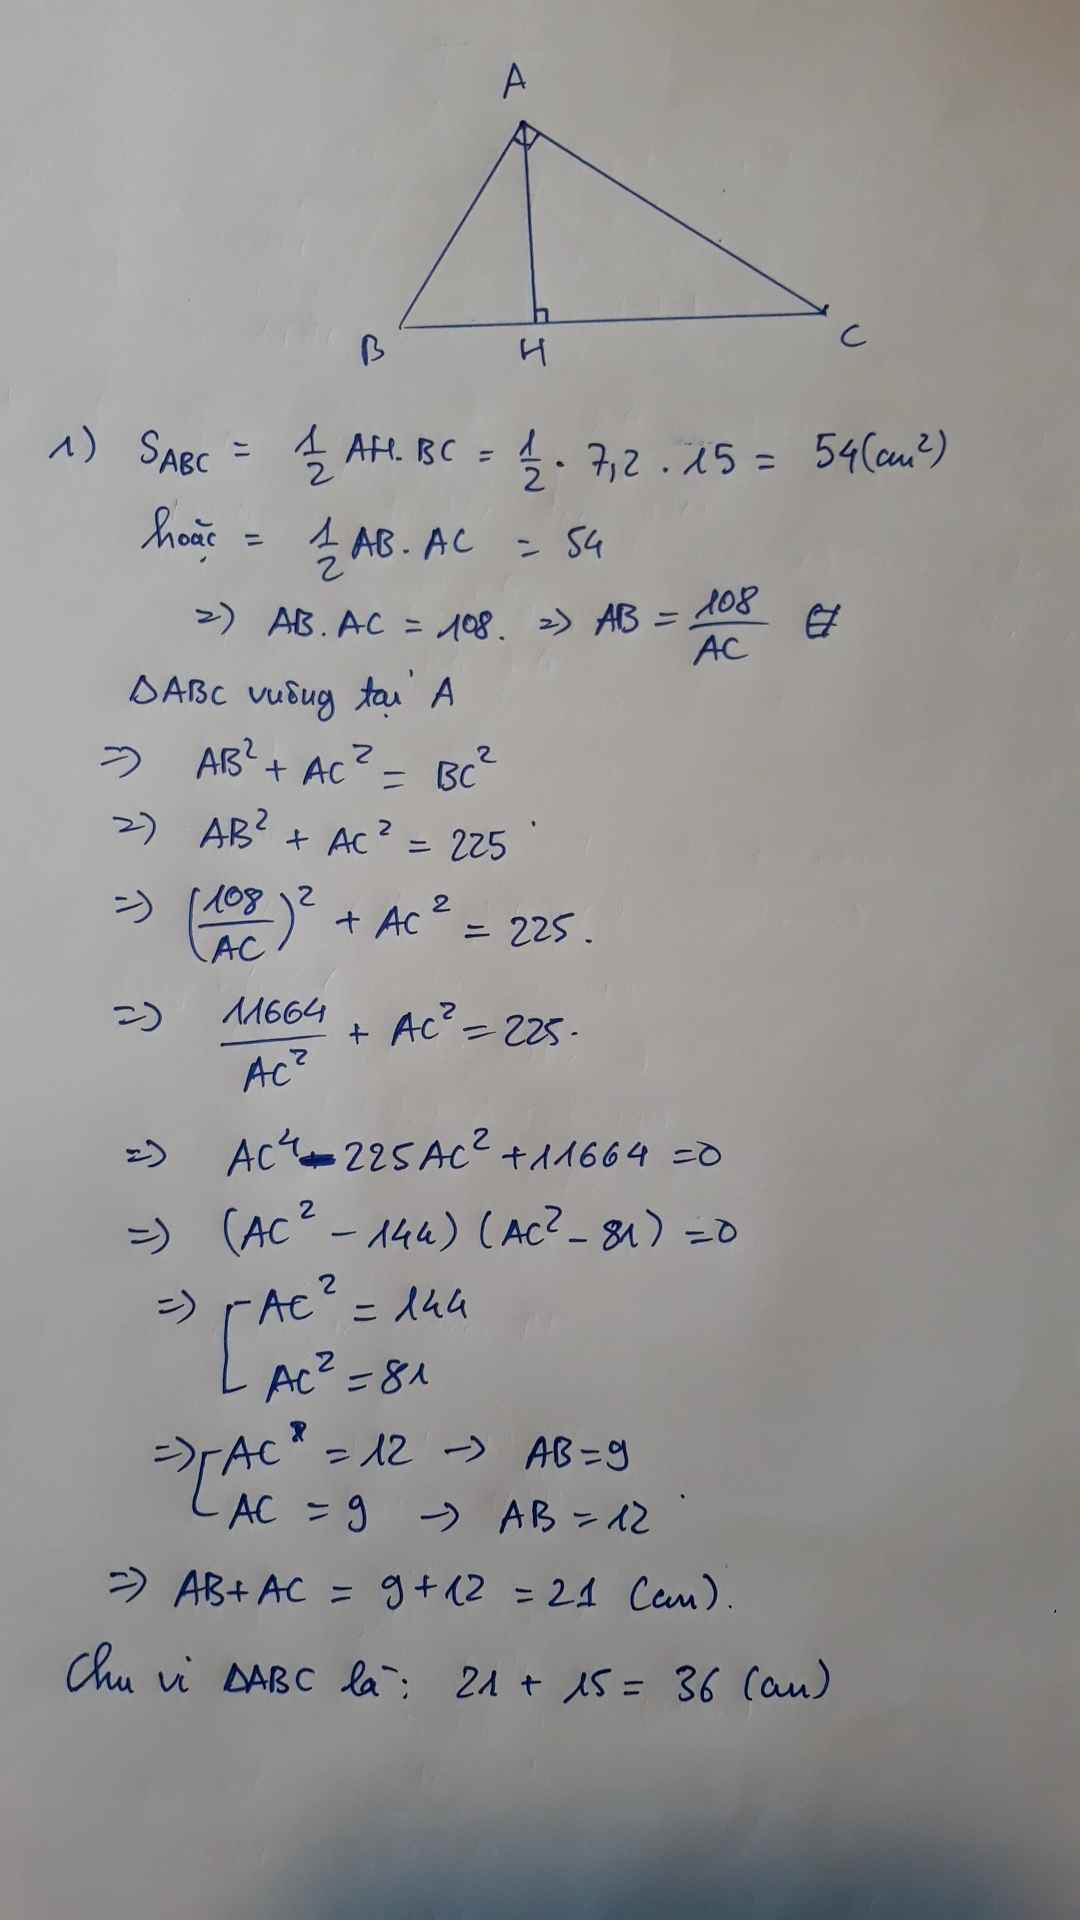 A
B
H
C
1) S_ABC = 1/2 AH.BC = 1/2 . 7,2 . 15 = 54(cm²)
hoặc = 1/2 AB. AC = 54
=> AB. AC = 108. => AB = 108/AC
ΔABC vuông tại A
=> AB² + AC² = BC²
=> AB² + AC² = 225
=> (108/AC)² + AC² = 225.
=> 11664/AC² + AC² = 225.
=> AC⁴ - 225AC² + 11664 = 0
=> (AC² - 144) (AC² - 81) = 0
=> [ AC² = 144
AC² = 81
=> [ AC = 12 → AB = 9
AC = 9 → AB = 12
=> AB + AC = 9 + 12 = 21 (cm).
Chu vi ΔABC là: 21 + 15 = 36 (cm)